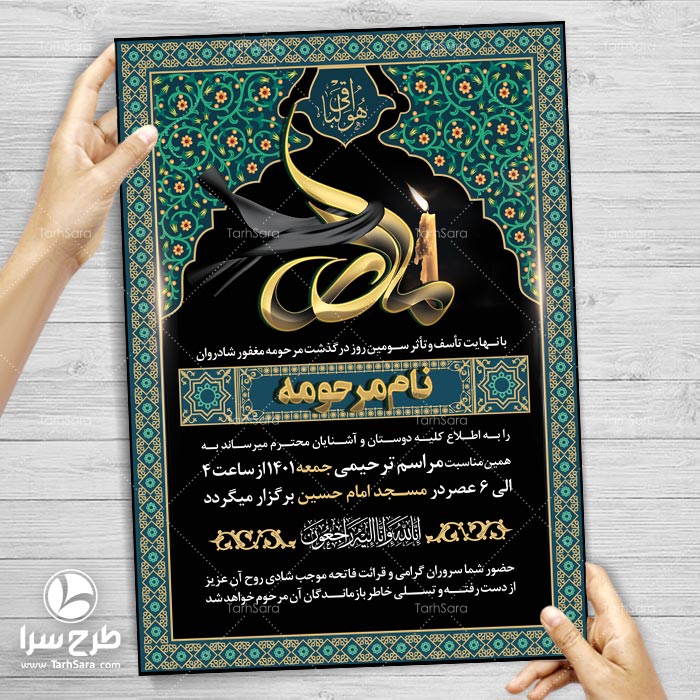 هوالباقی
مادر
با نهایت تأسف و تأثر سومین روز درگذشت مرحومه مغفور شادروان
نام مرحومه
را به اطلاع کلیه دوستان و آشنایان محترم میرساند به
همین مناسبت مراسم ترحیمی جمعه ۱۴۰۱ از ساعت ۴
الی ۶ عصر در مسجد امام حسین برگزار میگردد
انا لله و انا الیه راجعون
حضور شما سروران گرامی و قرائت فاتحه موجب شادی روح آن عزیز
از دست رفته و تسلی خاطر بازماندگان آن مرحوم خواهد شد
طرح سرا
www.TarhSara.com
TarhSara